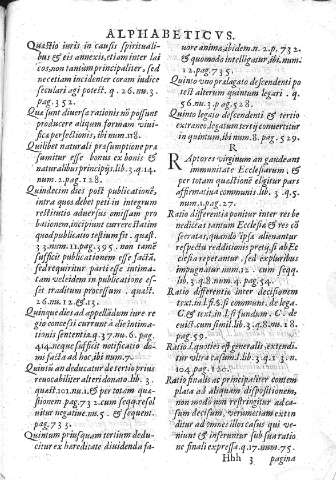 ALPHABETICVS.
Quæstio iuris in causis spirituali-
bus & eis annexis, etiam inter lai
cos, non tantum principaliter, sed
nec etiam incidenter coram iudice
seculari agi potest. q. 26. nu. 3.
pag. 352.
Quæ sunt diuersa rationis nõ possunt
producere aliquam formam vnius
ica perfectionis, ibi num. 18.
Quilibet naturali præsumptione præ
sumitur esse bonus ex bonis &
naturalibus principijs. lib. 3. q. 14.
num. 2. pag. 128.
Quindecim dies post publicationẽ,
intra quos debet peti in integrum
restitutio aduersus omissam pro
bationem, incipiunt currere etiam
quod publicatio testium fit. quæst.
33. num. 11. pag. 395. non tamẽ
sufficit publicationem esse factã,
sed requiritur parti esse intima-
tam vel eidem in publicatione es-
set traditum processum. quæst.
26. nu. 12. & 13.
Quinque dies ad appellãdum iure re
gio concessi currunt à die intima-
tionis sententiæ. q. 37. nu. 6. pag.
414. neque sufficit notificatio do-
mi facta ad hoc, ibi num. 7.
Quinti an deducatur de tertio prius
reuocabiliter alteri donato lib. 3.
quæst. 101. nu. 1. & per totam quæ-
stionem pag. 732. cum seqq. resol
uitur negatiue. nu. 5. & sequent.
pag. 735.
Quintum priusquam tertium dedu-
citur ex hæreditate diuidenda fa-
uore anima, ibidem. n. 2. p. 732.
& quomodo intelligatur, ibi. num.
12. pag. 735.
Quinto vno prælegato descendenti po
test alterum quintum legari. q.
56. nu. 3. pag. 528.
Quinto legato descendenti & tertio
extraneo, legatum tertij conuertitur
in quintum, ibi num. 8. pag. 529.
R
Raptores virginum an gaudeant
immunitate Ecclesiarum, &
per totam quæstionẽ eligitur pars
affirmatiua communis. lib. 3. q. 5.
num. 1. pag. 27.
Ratio differentiæ ponitur inter res be
neditas tantum Ecclesiæ & res cõ
secratas, quando ipsa alienantur
respectu redditionis pretij, si ab Ec
clesia repetantur. sed expluribus
impugnatur num. 12. cum seqq.
lib. 3. q. 8. num. 4. pag. 54.
Ratio differentiæ inter decisionem
text. in l. si. §. si communi. de lega.
C. & text. in l. si fundum. C. de
euict. cum simil. lib. 3. q. 8. nu. 18.
pag. 59.
Ratio l. quoties est generalis, extendi-
tur vltra casum l. lib. 3. q. 13. n. 10.
104. pag. 120.
Ratio finalis ac principaliter contem
plata ad aliquam dispositionem,
non modo vim restringitur ad ca-
sum decisum, verumetiam exten
ditur ad omnes illos casus qui ve-
niunt & inferuntur sub sua ratio
ne finali expressa. q. 17. num. 75.
Hhh 3 pagina